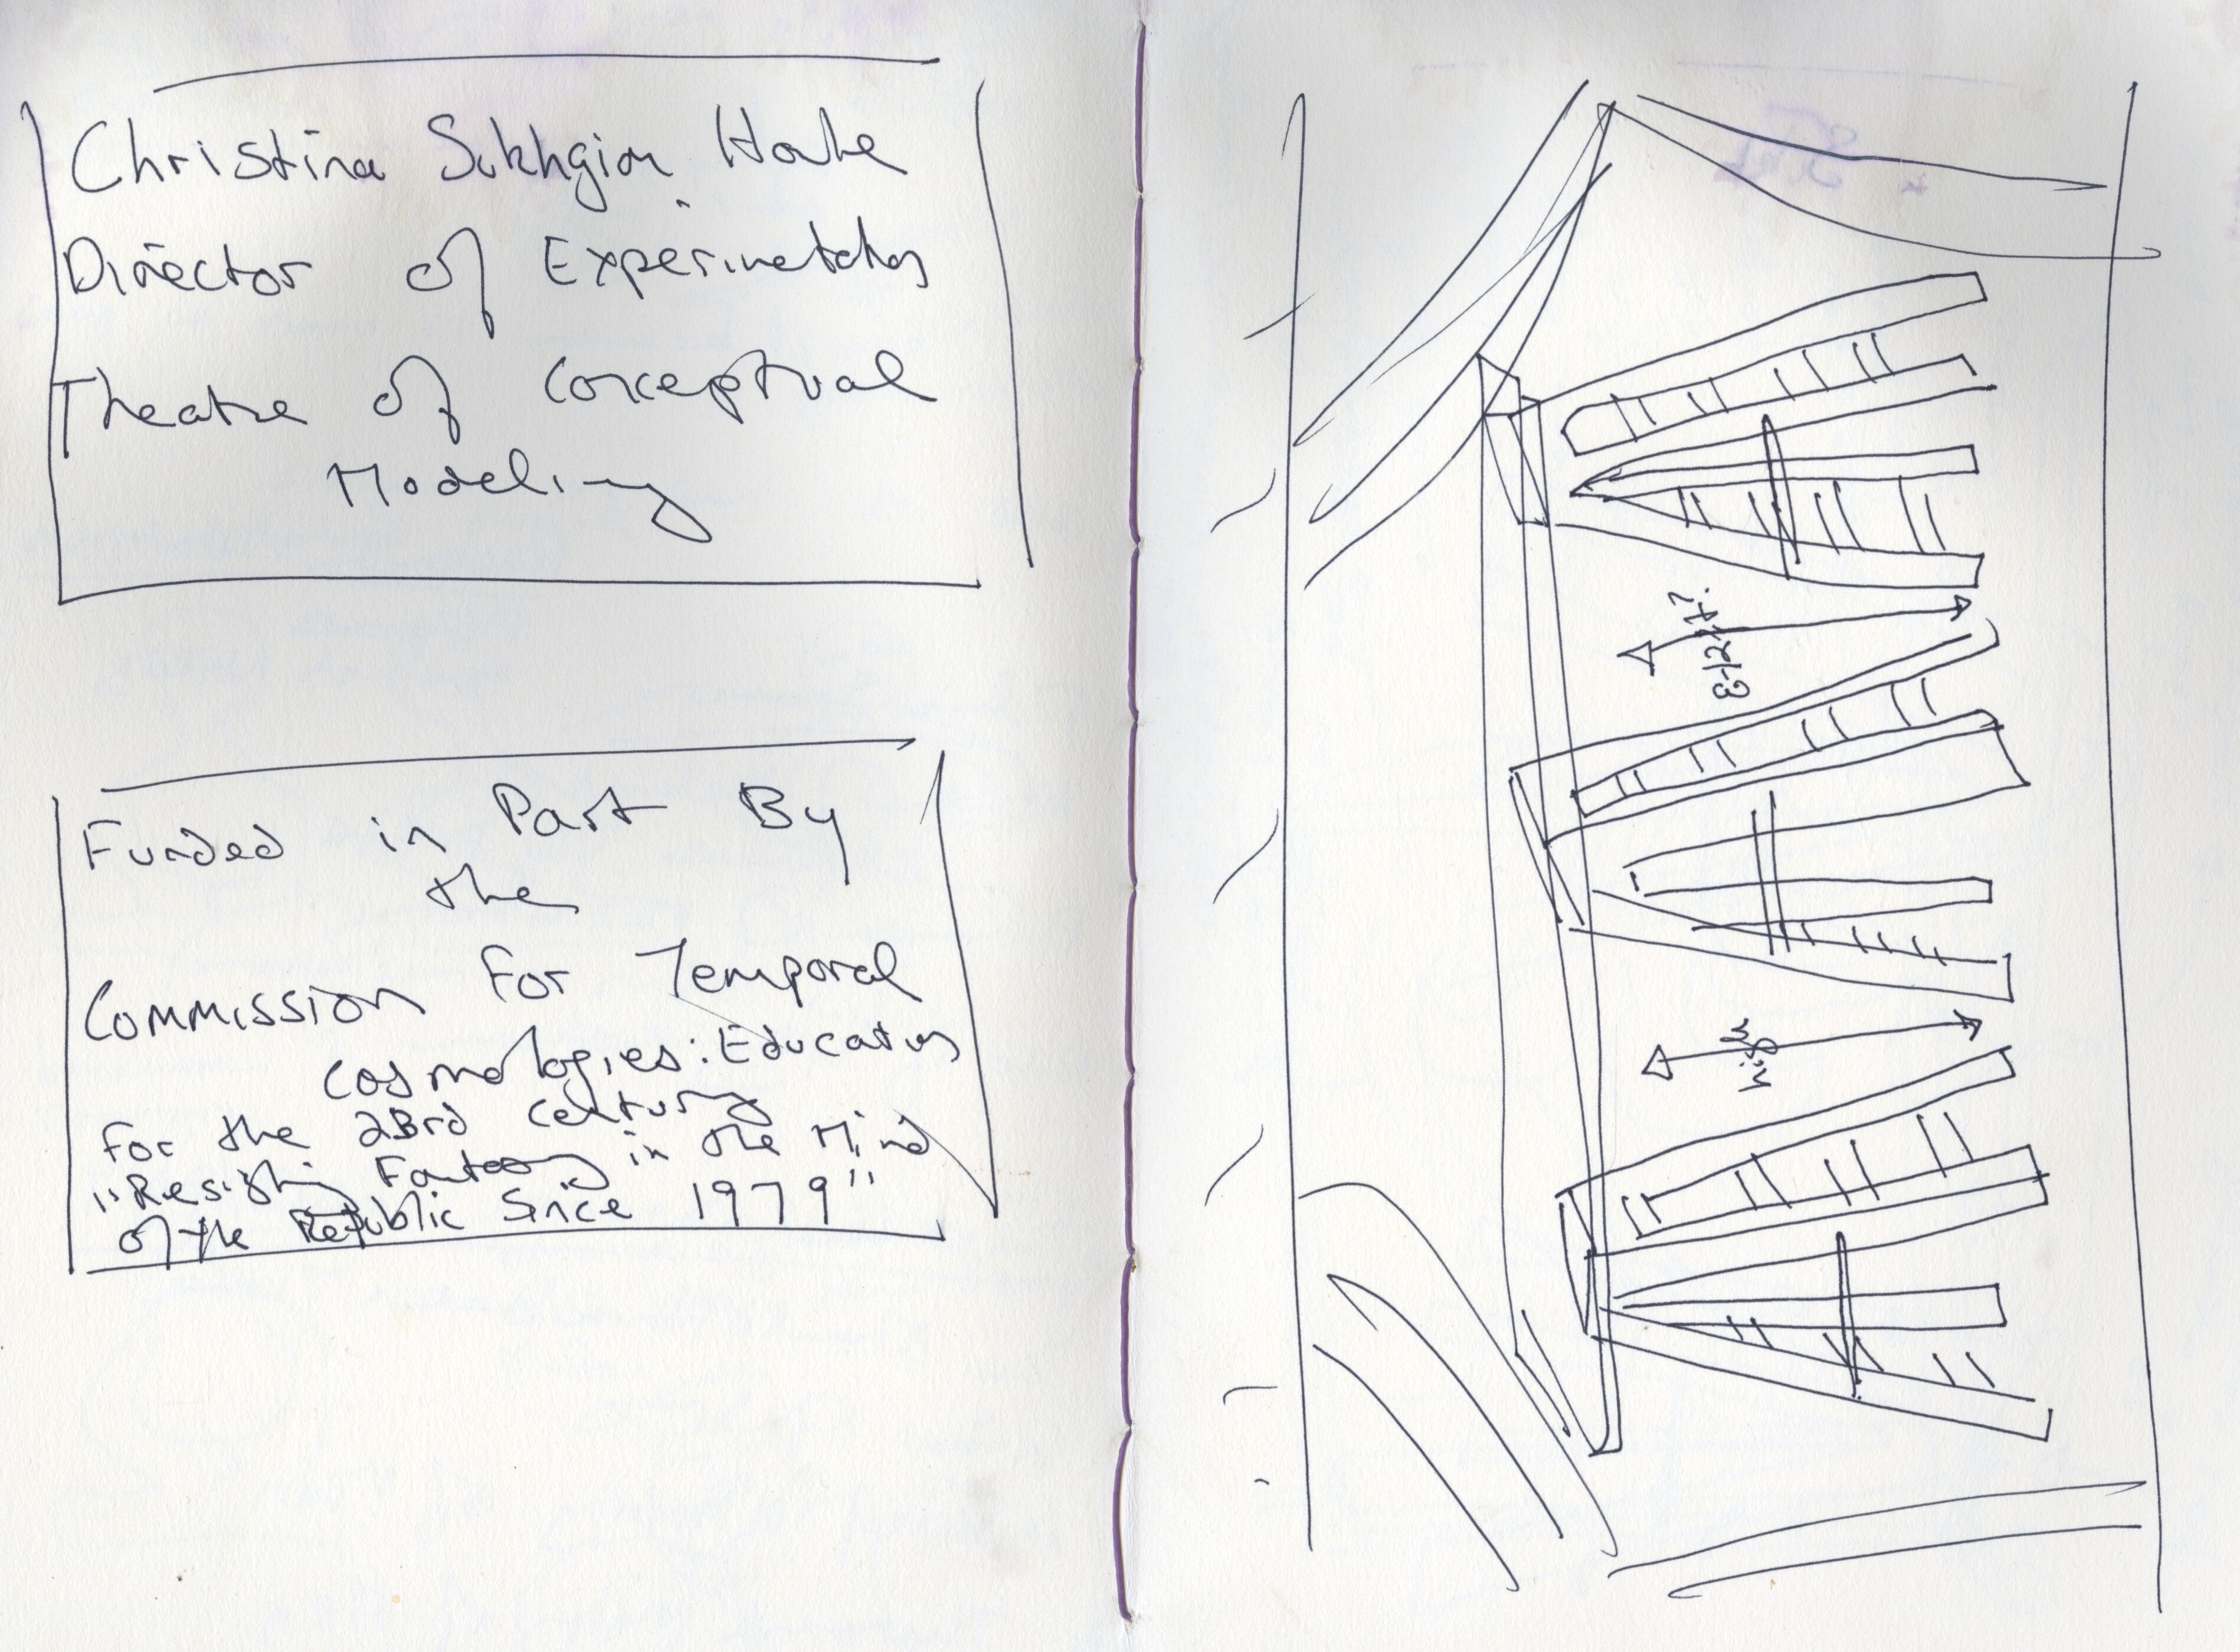 Christina Sukhgian Houle
Director of Experimetation
Theatre of Conceptual
Modeling
Funded in Part By
the
Commission For Temporal
Cosmologies: Education
For the 23rd Century
"Resisting Fantasy in the Mind
of the Republic Since 1979"
8-12ft?
high